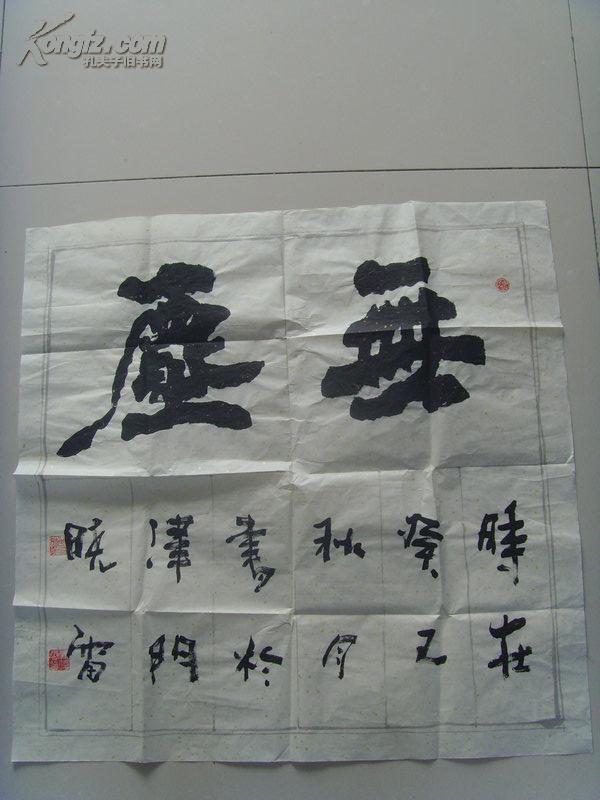 無塵
時在
癸
秋月
書於
津門
曉雷
Kongfz.com
孔夫子旧书网